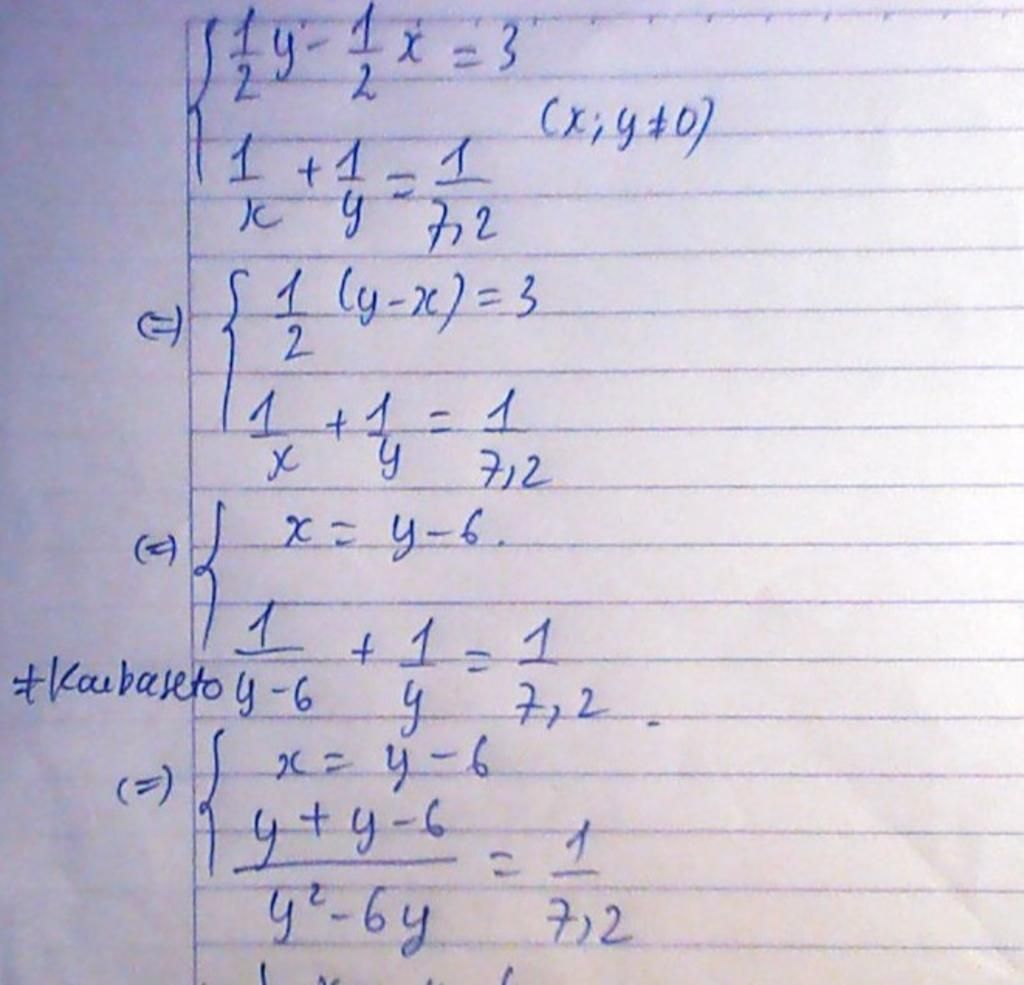 { 1/2 y - 1/2 x = 3
(x; y ≠ 0)
1/x + 1/y = 1/7,2
(=) { 1/2 (y-x) = 3
1/x + 1/y = 1/7,2
(=) { x = y - 6.
1/(y-6) + 1/y = 1/7,2.
≠Kaibaseto
(=) { x = y - 6
(y + y - 6)/(y² - 6y) = 1/7,2